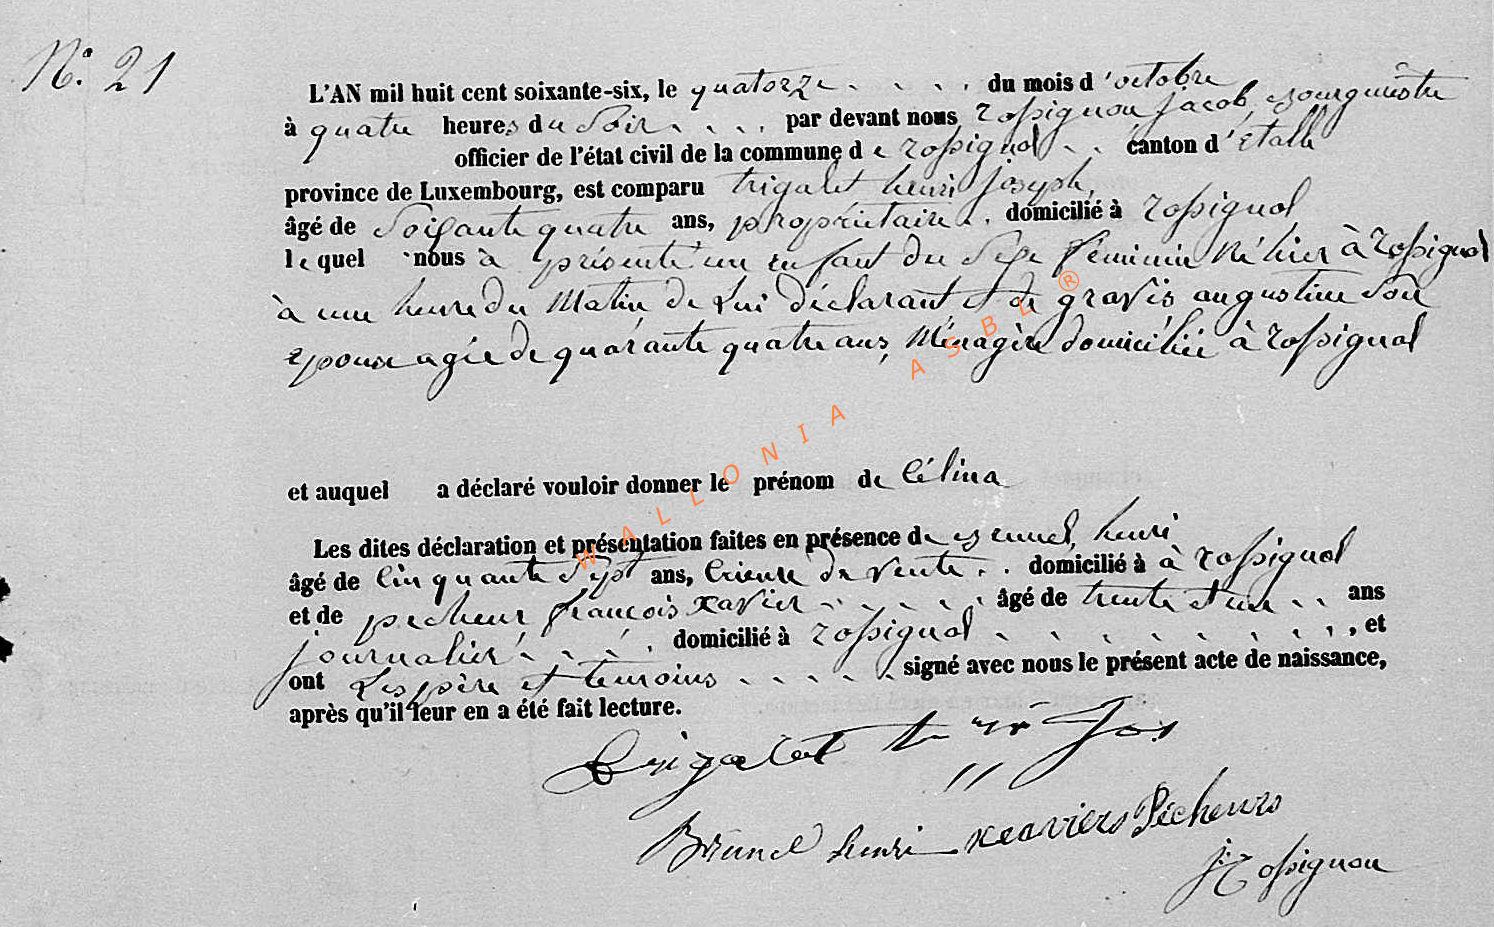 N.° 21
L'AN mil huit cent soixante-six, le quatorze . . . . du mois d'octobre
à quatre heures du soir . . . . par devant nous rossignon jacob, bourguestre
officier de l'état civil de la commune de rossignol . . canton d'étalle
province de Luxembourg, est comparu trigalet henri joseph,
âgé de soixante quatre ans, propriétaire . . domicilié à rossignol
lequel nous à présenté un enfant du sexe féminin né hier à rossignol
à une heure du matin de lui déclarant et de gravis, augustine son
epouse agée de quarante quatre ans, ménagère domiciliée à rossignol
et auquel a déclaré vouloir donner le prénom de Célina
Les dites déclaration et présentation faites en présence de brunel, henri
âgé de cinquante sept ans, crieur de vente . . domicilié à à rossignol
et de pecheur françois xavier . . . . . . âgé de trente et un . . ans
journalier . . . . . domicilié à rossignol . . . . . . . . . . , et
ont les père et temoins . . . . . signé avec nous le présent acte de naissance,
après qu'il leur en a été fait lecture.
Trigalet hri Jos
Brunel henri xaviers Pêcheurs
J. Rossignon
WALLONIA ASBL ®